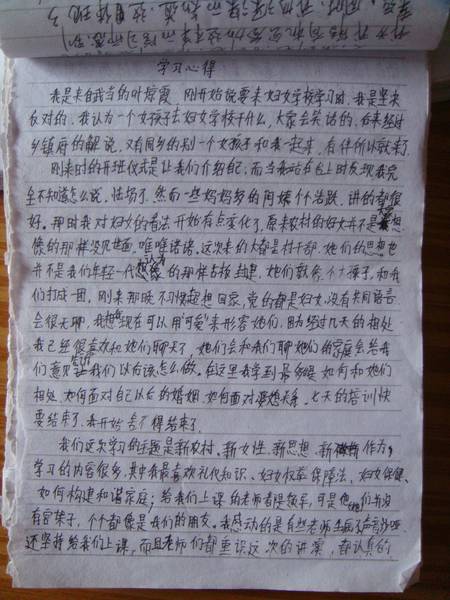 学习心得
我是来自武当的叶烬霞 刚开始说要来妇女学校学习时，我是坚决
反对的，我认为一个女孩子去妇女学校干什么，大家会笑话的，后来经过
乡镇府的解说，又有同乡的别一个女孩子和我一起来，有伴所以就来了
刚来时的开班仪式是让我们介绍自己，而当我站在台上时发现我完
全不知道怎么说，怯场了，然而一些妈妈级的阿姨个个活跃，讲的都很
好。那时我对妇女的看法开始有点变化了，原来农村的妇女并不是想
像的那样没见世面，唯唯诺诺，这次来的大都是村干部，她们的思想也
并不是我们年轻一代认为的那样古板封建，她们就像个大孩子，和我
们打成一团，刚来那晚不习惯超想回家，觉的都是妇女，没有共同语言
会很无聊，我想现在可以用"可爱"来形容她们，因为经过几天的相处
我已经很喜欢和她们聊天了，她们会和我们聊她们的家庭会给我
们意见告诉我们以后该怎么做，在这里我学到最多是如何和她们
相处，如何面对自己以后的婚姻，如何面对婆媳关系，七天的培训快
要结束了，我开始舍不得结束了，
我们这次学习的主题是新农村、新女性、新思想、新作为，
学习的内容很多，其中我最喜欢礼仪知识、妇女权益保障法、妇女保健、
如何构建和谐家庭；给我们上课的老师都是领导，可是他们并没
有官架子，个个都像是我们的朋友。我感动的是有些老师生病了声音沙哑
还坚持给我们上课，而且老师们都重视这次的讲演，都认真的